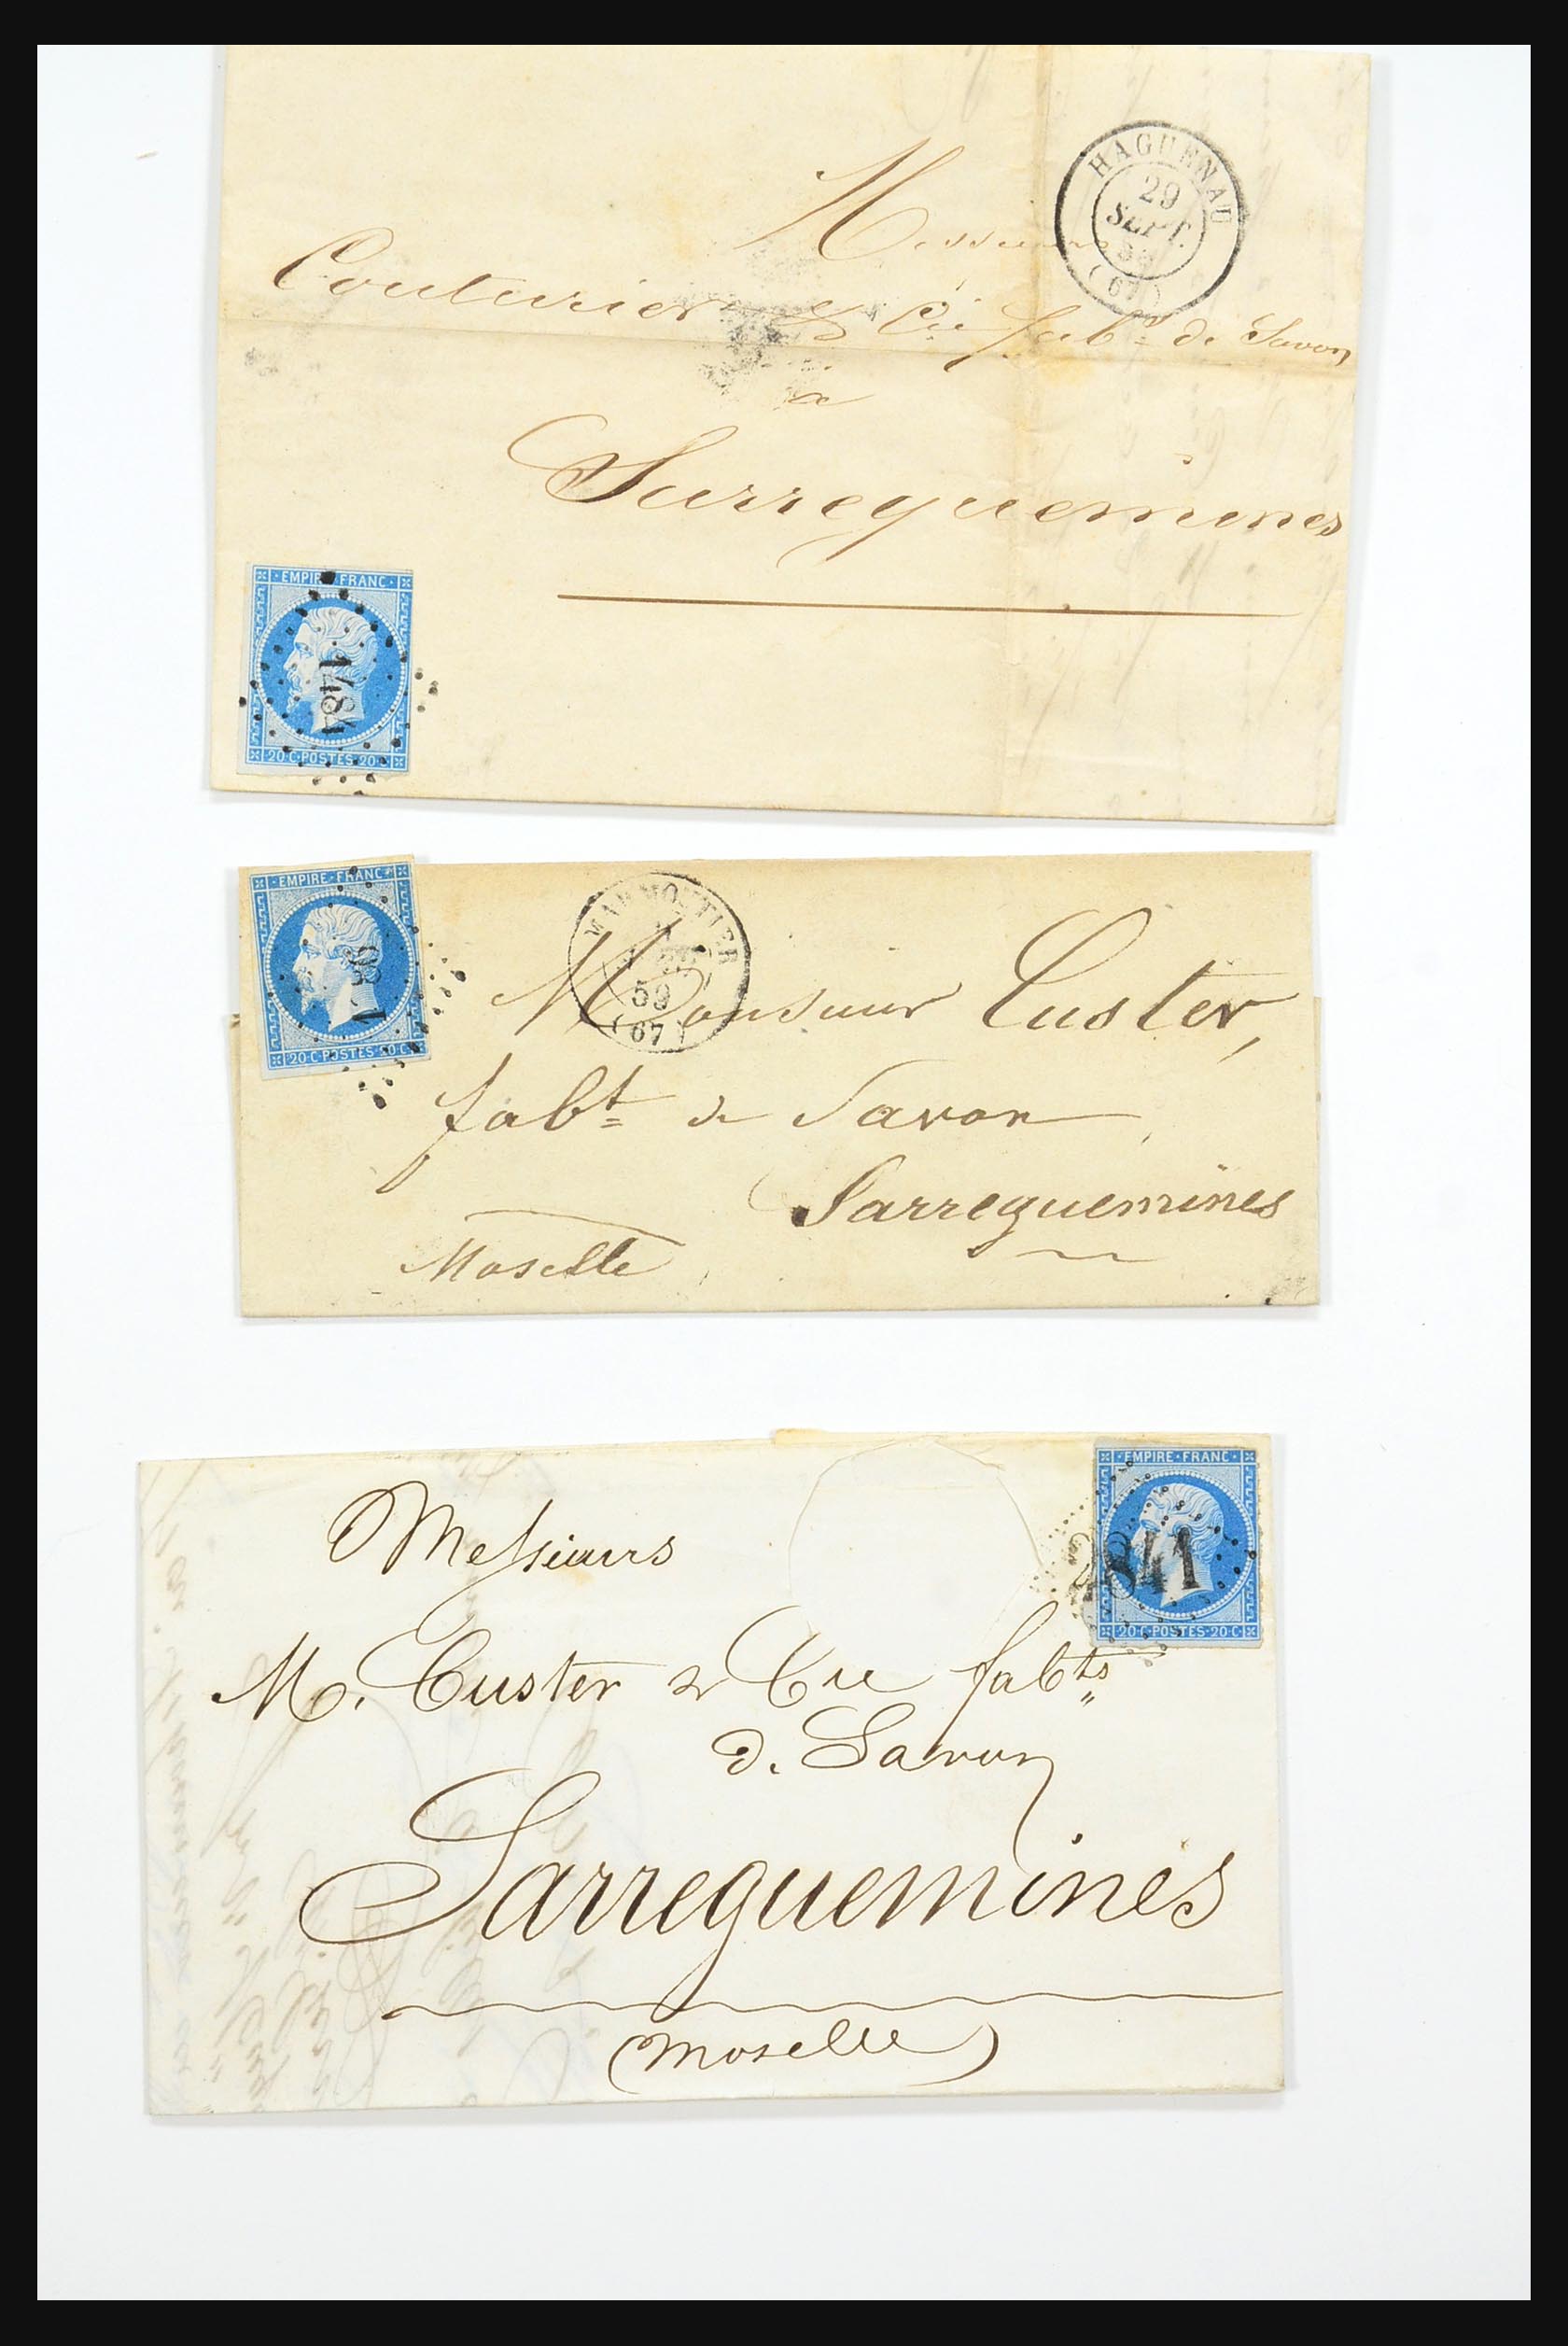 HAGUENAU
29
SEPT.
(67)
Messieurs
Couturier & Cie fabts de Savon
à
Sarreguemines
EMPIRE FRANC
1484
20·C·POSTES·20·C
EMPIRE·FRANC
20·C·POSTES·20·C
MARMOUTIER
59
(67)
Monsieur Custer,
fabt de Savon
Sarreguemines
Moselle
EMPIRE·FRANC
2841
20·C·POSTES·20·C
Messieurs
M. Custer & Cie fabts
d. Savon
Sarreguemines
(Moselle)